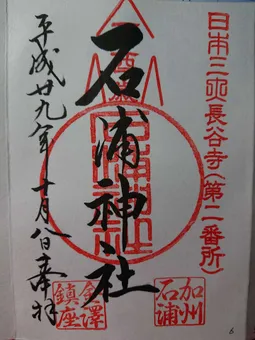 日本三大長谷寺(第二番所)
石浦神社
平成廿九年十月八日奉拝
加州
石浦
金澤
鎮座
6